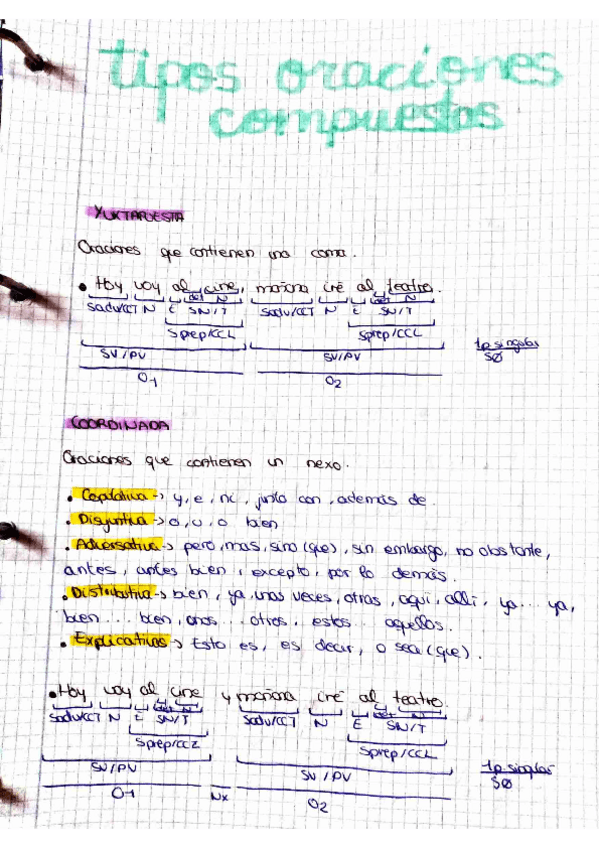 tipos oraciones
compuestas
YUXTAPUESTA
Oraciones que contienen una coma.
• Hoy voy al cine, mañana iré al teatro.
det N det N
Sadv/CCT N E SN/T Sadv/CCT N E SN/T
Sprep/CCL Sprep/CCL
1p.singular
SØ
SV/PV SV/PV
O1 O2
COORDINADA
Oraciones que contienen un nexo.
• Copulativa -> y, e, ni, junto con, además de.
• Disyuntiva -> o, u, o bien
• Adversativa -> pero, mas, sino (que), sin embargo, no obstante,
antes, antes bien, excepto, por lo demás.
• Distributiva -> bien, ya, unas veces, otras, aquí, allí, ya... ya,
bien... bien, unos... otros, estos... aquellos.
• Explicativas -> Esto es, es decir, o sea (que).
• Hoy voy al cine y mañana iré al teatro.
det N det N
Sadv/CCT N E SN/T Sadv/CCT N E SN/T
Sprep/CCL Sprep/CCL
SV/PV SV/PV
1p.singular
SØ
O1 Nx O2